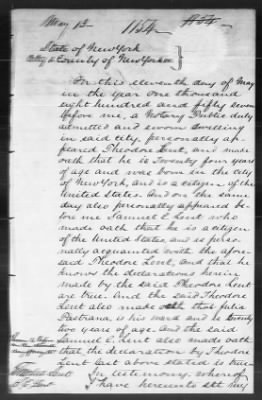 May 13 1154
State of New York
City & County of New York ss
On this eleventh day of May
in the year One thousand
eight hundred and fifty seven
before me, a Notary Public duly
admitted and sworn dwelling
in said city, personally ap
peared Theodore Lent, and made
oath that he is Twenty four years
of age and was born in the city
of New York, and is a citizen of the
United States. And on the same
day also personally appeared be
fore me Samuel E. Lent who
made oath that he is a citizen
of the United States, and is perso
nally acquainted with the afore
said Theodore Lent, and that he
knows the declarations herein
made by the said Theodore Lent
are true. And the said Theodore
Lent also made oath that Julia
Pastrana, is his ward and is twenty
two years of age. And the said
Samuel E. Lent also made oath
that the declaration by Theodore
Lent last above stated is true.
In testimony whereof
I have hereunto set my
Theodore Lent
S. E. Lent